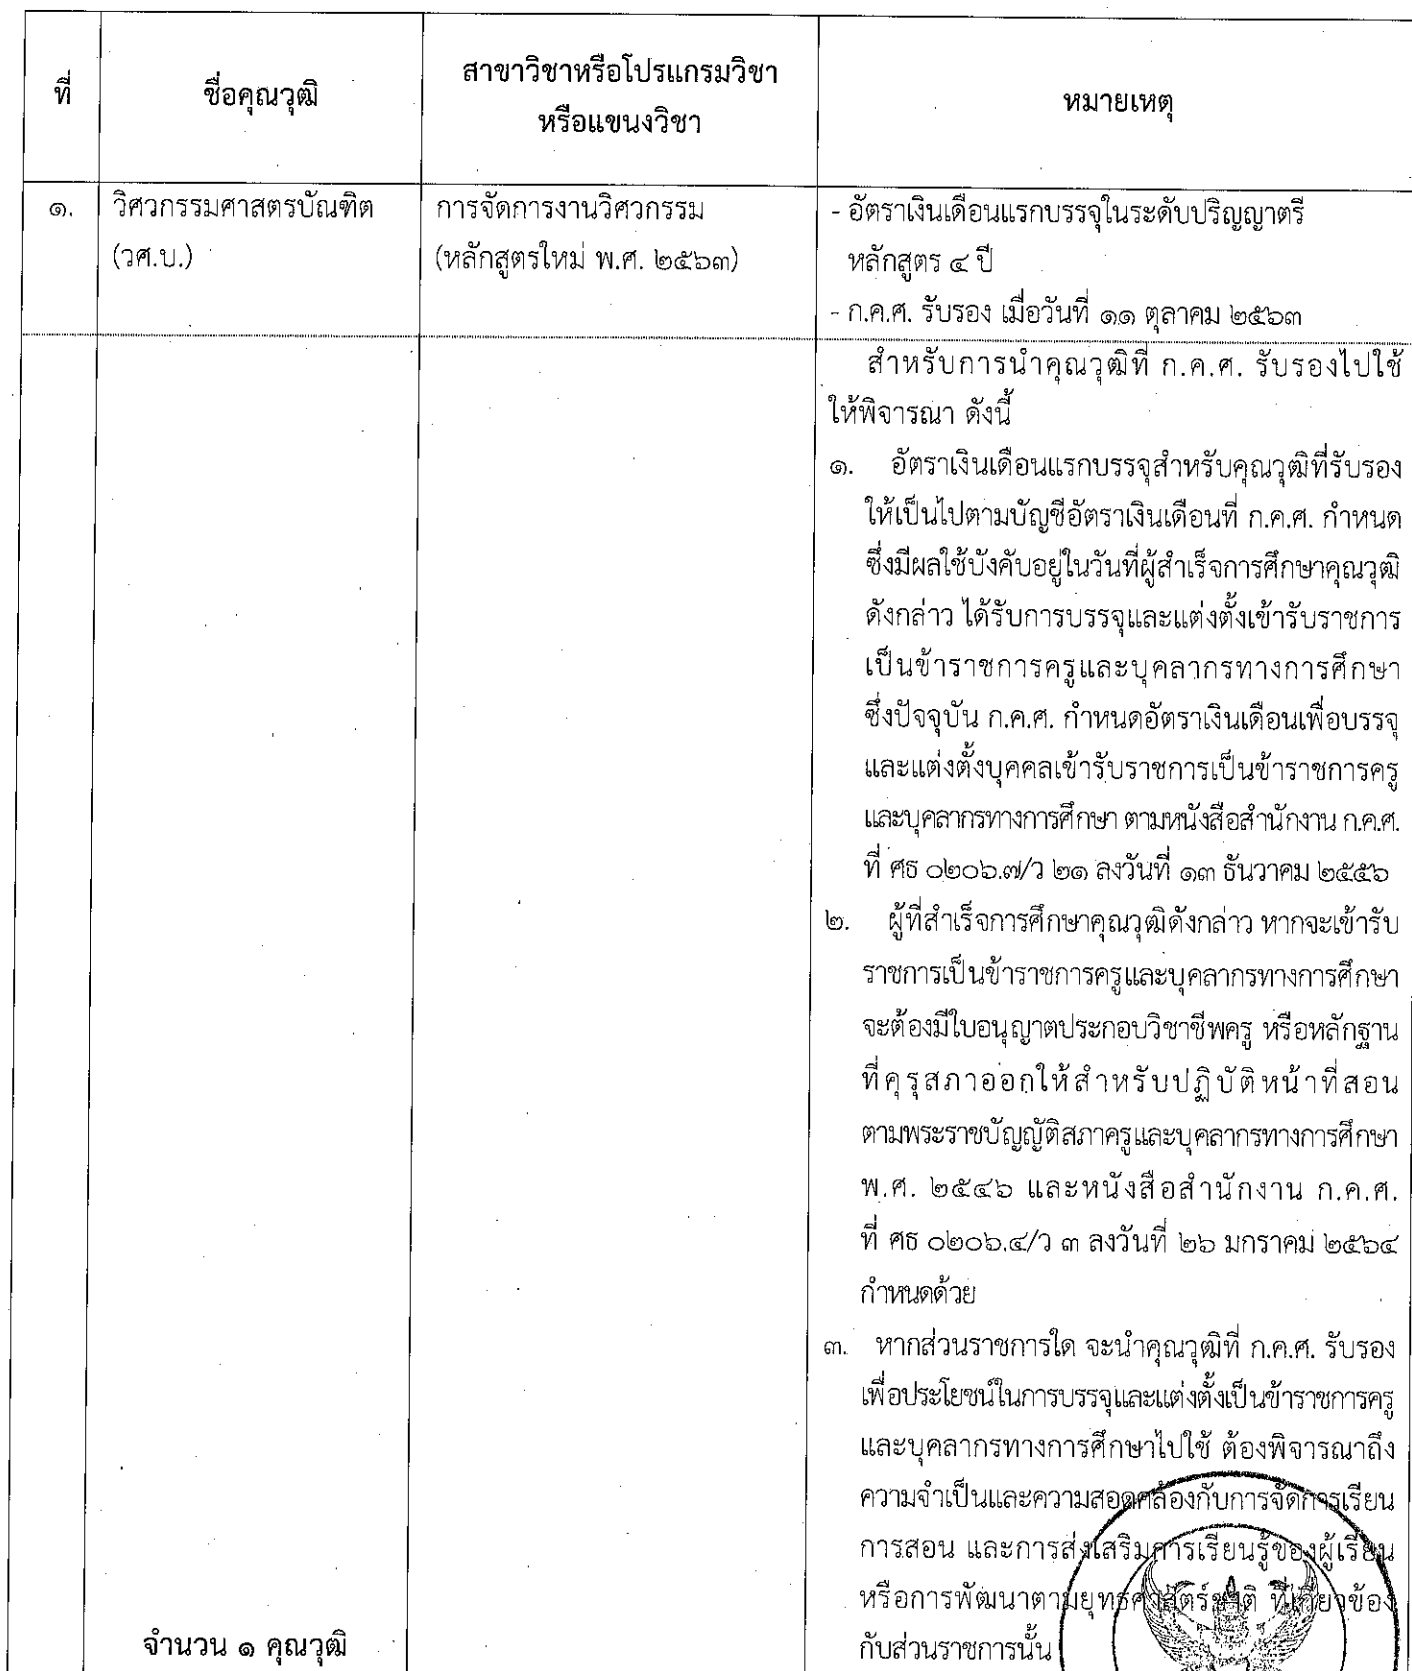 ที่
ชื่อคุณวุฒิ
สาขาวิชาหรือโปรแกรมวิชา
หรือแขนงวิชา
หมายเหตุ
๑.
วิศวกรรมศาสตรบัณฑิต
(วศ.บ.)
การจัดการงานวิศวกรรม
(หลักสูตรใหม่ พ.ศ. ๒๕๖๓)
- อัตราเงินเดือนแรกบรรจุในระดับปริญญาตรี
หลักสูตร ๔ ปี
- ก.ค.ศ. รับรอง เมื่อวันที่ ๑๑ ตุลาคม ๒๕๖๓
สำหรับการนำคุณวุฒิที่ ก.ค.ศ. รับรองไปใช้
ให้พิจารณา ดังนี้
๑. อัตราเงินเดือนแรกบรรจุสำหรับคุณวุฒิที่รับรอง
ให้เป็นไปตามบัญชีอัตราเงินเดือนที่ ก.ค.ศ. กำหนด
ซึ่งมีผลใช้บังคับอยู่ในวันที่ผู้สำเร็จการศึกษาคุณวุฒิ
ดังกล่าว ได้รับการบรรจุและแต่งตั้งเข้ารับราชการ
เป็นข้าราชการครูและบุคลากรทางการศึกษา
ซึ่งปัจจุบัน ก.ค.ศ. กำหนดอัตราเงินเดือนเพื่อบรรจุ
และแต่งตั้งบุคคลเข้ารับราชการเป็นข้าราชการครู
และบุคลากรทางการศึกษา ตามหนังสือสำนักงาน ก.ค.ศ.
ที่ ศธ ๐๒๐๖.๗/ว ๒๑ ลงวันที่ ๑๓ ธันวาคม ๒๕๕๖
๒. ผู้ที่สำเร็จการศึกษาคุณวุฒิดังกล่าว หากจะเข้ารับ
ราชการเป็นข้าราชการครูและบุคลากรทางการศึกษา
จะต้องมีใบอนุญาตประกอบวิชาชีพครู หรือหลักฐาน
ที่คุรุสภาออกให้สำหรับปฏิบัติหน้าที่สอน
ตามพระราชบัญญัติสภาครูและบุคลากรทางการศึกษา
พ.ศ. ๒๕๔๖ และหนังสือสำนักงาน ก.ค.ศ.
ที่ ศธ ๐๒๐๖.๔/ว ๓ ลงวันที่ ๒๖ มกราคม ๒๕๖๔
กำหนดด้วย
๓. หากส่วนราชการใด จะนำคุณวุฒิที่ ก.ค.ศ. รับรอง
เพื่อประโยชน์ในการบรรจุและแต่งตั้งเป็นข้าราชการครู
และบุคลากรทางการศึกษาไปใช้ ต้องพิจารณาถึง
ความจำเป็นและความสอดคล้องกับการจัดการเรียน
การสอน และการส่งเสริมการเรียนรู้ของผู้เรียน
หรือการพัฒนาตามยุทธศาสตร์ชาติ ที่เกี่ยวข้อง
กับส่วนราชการนั้น
จำนวน ๑ คุณวุฒิ